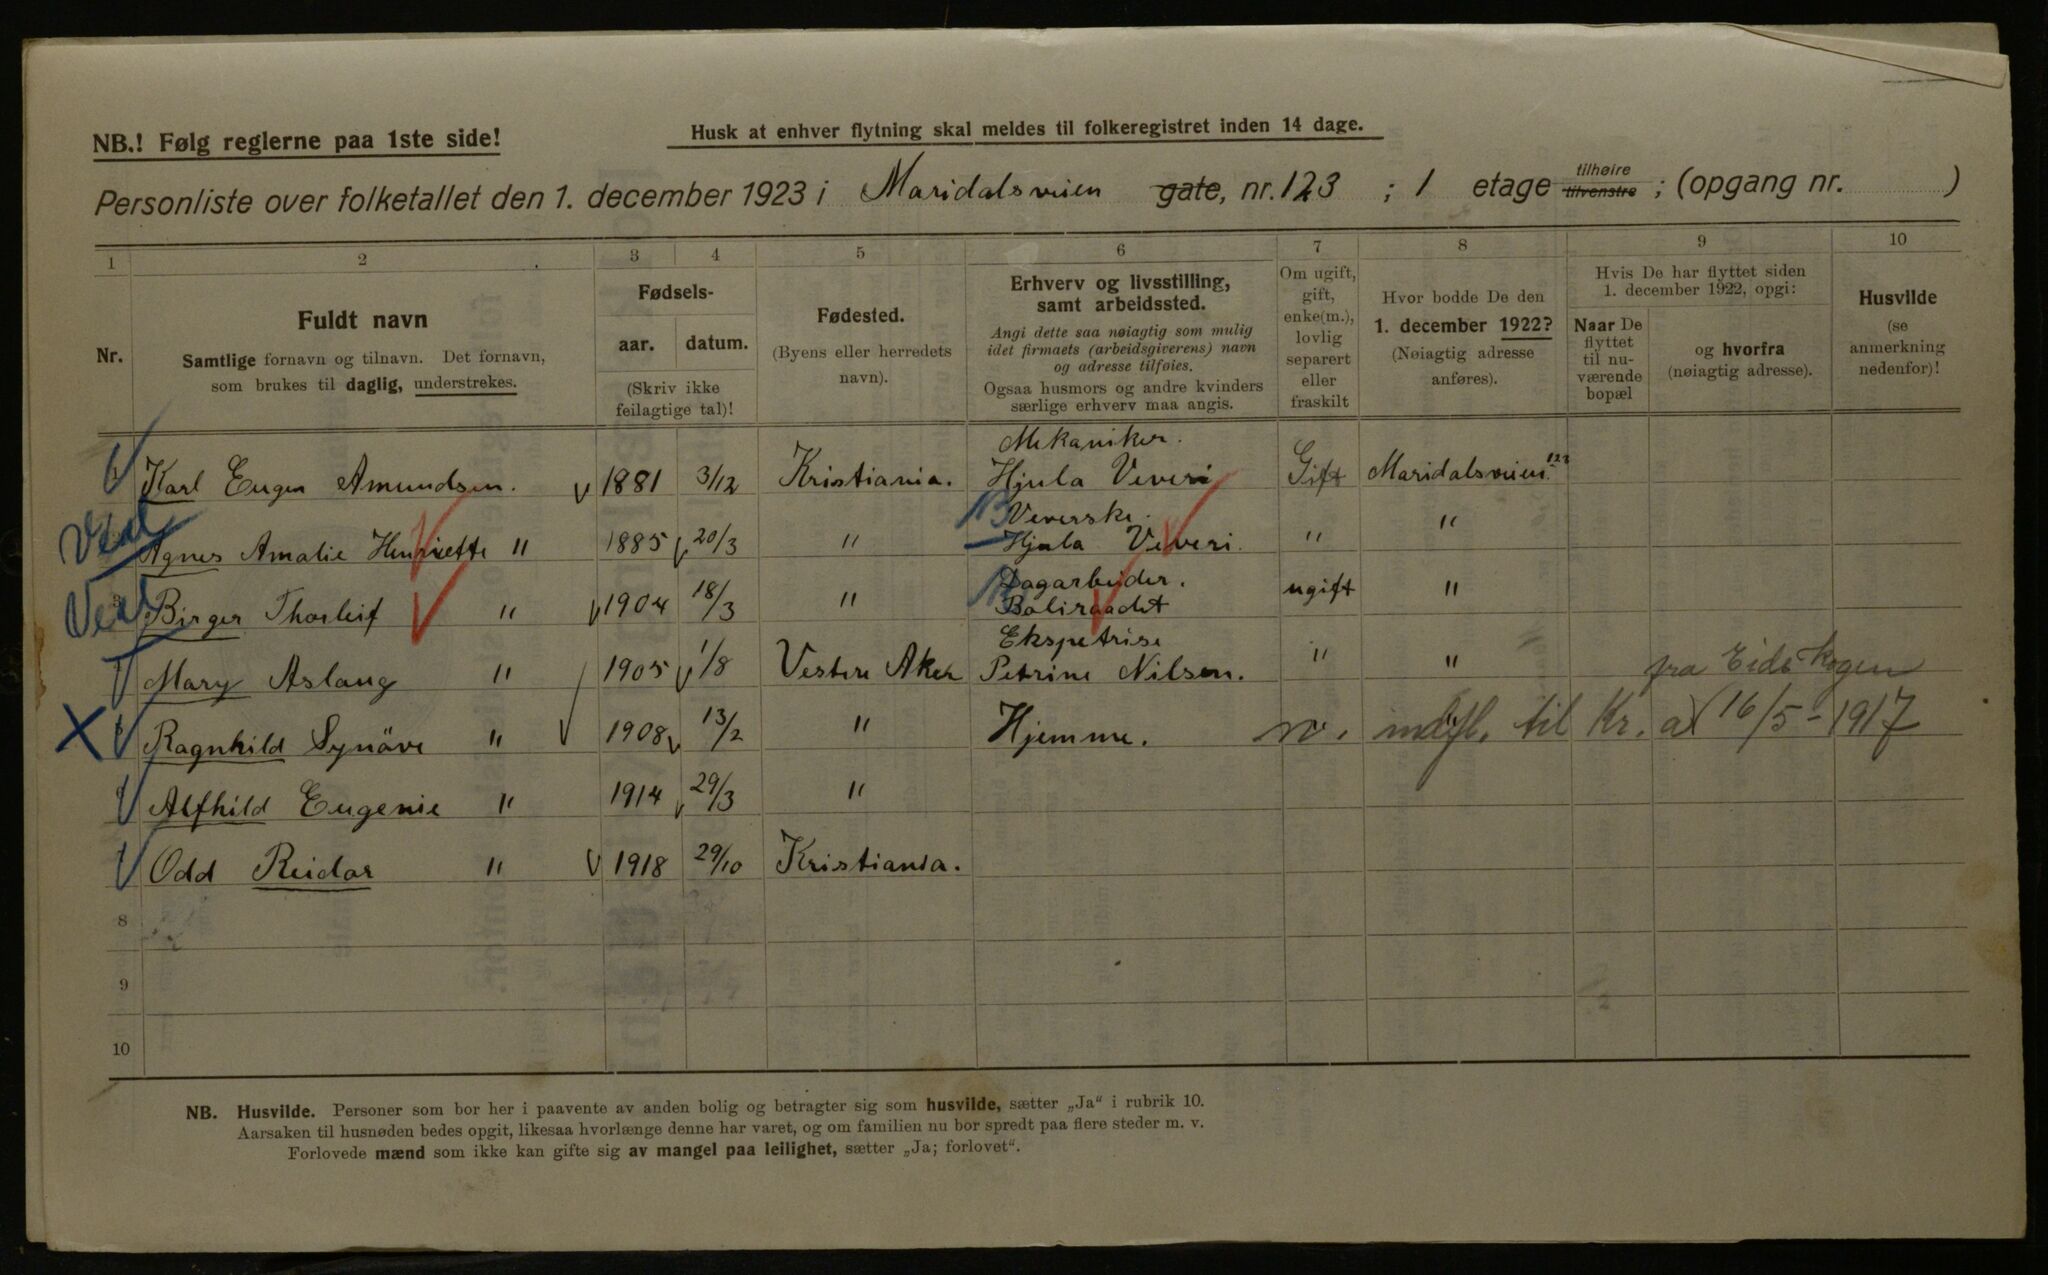 NB.! Følg reglerne paa 1ste side!
Husk at enhver flytning skal meldes til folkeregistret inden 14 dage.
Personliste over folketallet den 1. december 1923 i Maridalsveien gate, nr. 123 ; 1 etage tilhøire tilvenstre ; (opgang nr. )
1 2 3 4 5 6 7 8 9 10
Nr.
Fuldt navn
Samtlige fornavn og tilnavn. Det fornavn,
som brukes til daglig, understrekes.
Fødsels-
aar. datum.
(Skriv ikke
feilagtige tal)!
Fødested.
(Byens eller herredets
navn).
Erhverv og livsstilling,
samt arbeidssted.
Angi dette saa nøiagtig som mulig
idet firmaets (arbeidsgiverens) navn
og adresse tilføies.
Ogsaa husmors og andre kvinders
særlige erhverv maa angis.
Om ugift,
gift,
enke(m.),
lovlig
separert
eller
fraskilt
Hvor bodde De den
1. december 1922?
(Nøiagtig adresse
anføres).
Hvis De har flyttet siden
1. december 1922, opgi:
Naar De
flyttet
til nu-
værende
bopæl
og hvorfra
(nøiagtig adresse).
Husvilde
(se
anmerkning
nedenfor)!
Mekaniker.
1 Karl Eugen Amundsen. 1881 3/12 Kristiania. Hjula Veveri Gift Maridalsveien 123
Veverske.
Agnes Amalie Henriette " 1885 20/3 " Hjula Veveri. " "
Dagarbeider.
3 Birger Thorleif " 1904 18/3 " Boliraadet ugift "
Ekspetrise
Mary Aslaug " 1905 1/8 Vestre Aker Petrine Nilsen. " "
fra Eidskogen
X Ragnhild Synöve " 1908 13/2 " Hjemme. indfl. til Kr. a 16/5-1917
Alfhild Eugenie " 1914 29/3 "
Odd Reidar " 1918 29/10 Kristiania.
8
9
10
NB. Husvilde. Personer som bor her i paavente av anden bolig og betragter sig som husvilde, sætter „Ja" i rubrik 10.
Aarsaken til husnøden bedes opgit, likesaa hvorlænge denne har varet, og om familien nu bor spredt paa flere steder m. v.
Forlovede mænd som ikke kan gifte sig av mangel paa leilighet, sætter „Ja; forlovet".